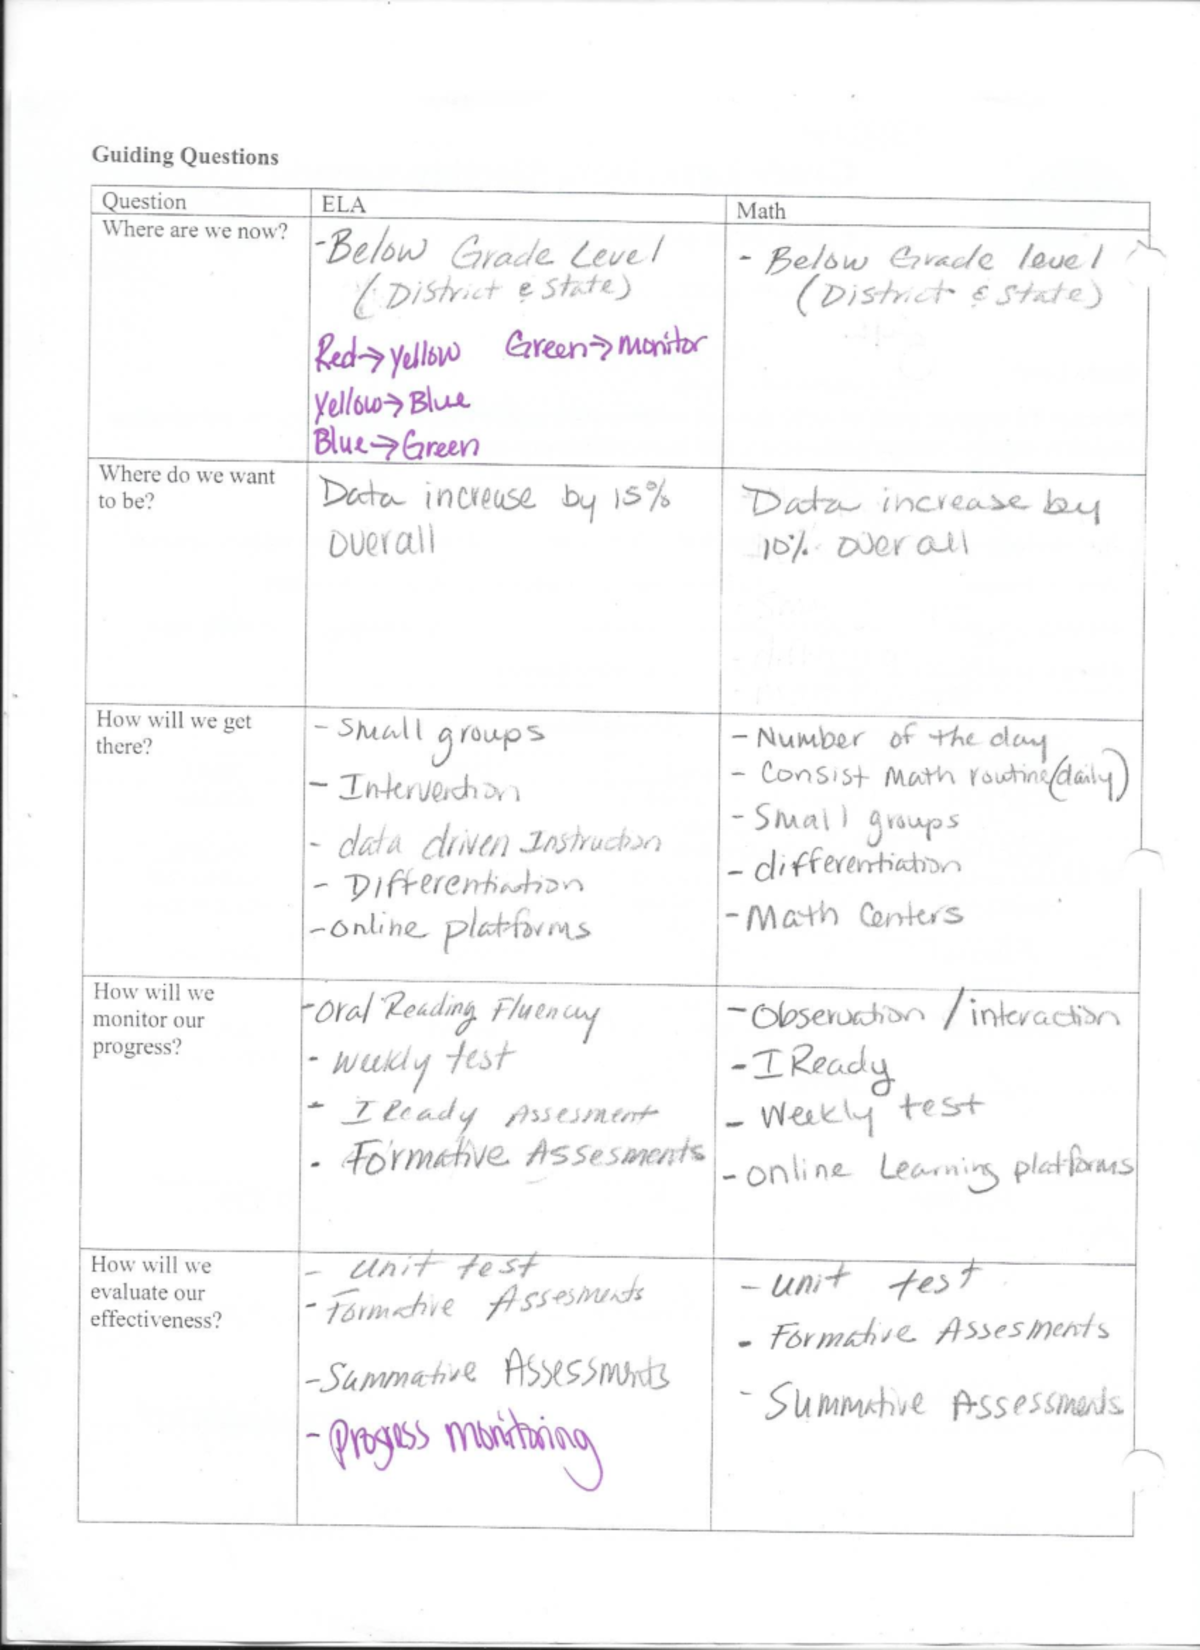 Guiding Questions
Question
ELA
Math
Where are we now?
-Below Grade Level
(District & State)
Red→yellow Green→monitor
Yellow→Blue
Blue→Green
- Below Grade level
(District & State)
Where do we want
to be?
Data increase by 15%
overall
Data increase by
10% overall
How will we get
there?
- Small groups
- Intervention
- data driven Instruction
- Differentiation
-online platforms
- Number of the day
- Consist Math routine (daily)
- Small groups
- differentiation
- Math Centers
How will we
monitor our
progress?
-Oral Reading Fluency
- weekly test
- I Ready Assesment
- Formative Assesments
- Observation / interaction
- I Ready
- Weekly test
- online Learning platforms
How will we
evaluate our
effectiveness?
- unit test
- Formative Assesments
-Summative Assessments
- Progress monitoring
- unit test
- Formative Assesments
- Summative Assessments